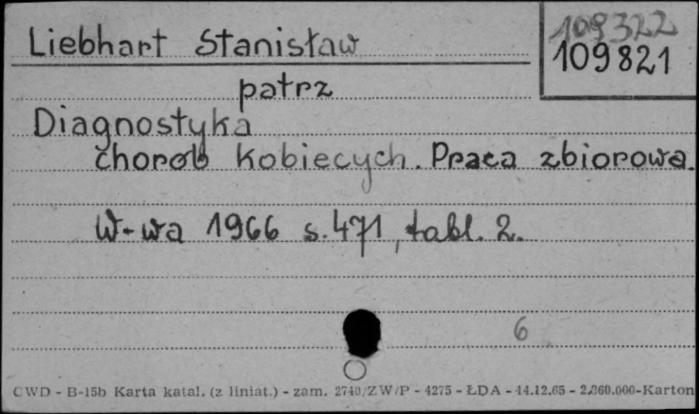 Liebhart Stanisław
109322
109821
patrz
Diagnostyka
chorób kobiecych. Praca zbiorowa.
W-wa 1966 s. 471, tabl. 2.
6
CWD - B-15b Karta katal. (z liniat.) - zam. 2740/ZW/P - 4275 - ŁDA - 14.12.65 - 2.860.000-Karton